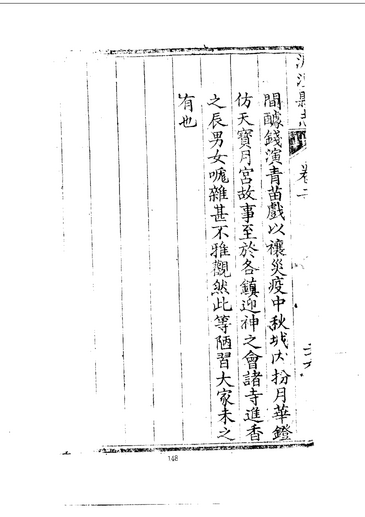 縣志 卷二
間醵錢演青苗戲以禳災疫中秋城內扮月華鐙
仿天寶月宮故事至於各鎮迎神之會諸寺進香
之辰男女哤雜甚不雅觀然此等陋習大家未之
有也
148